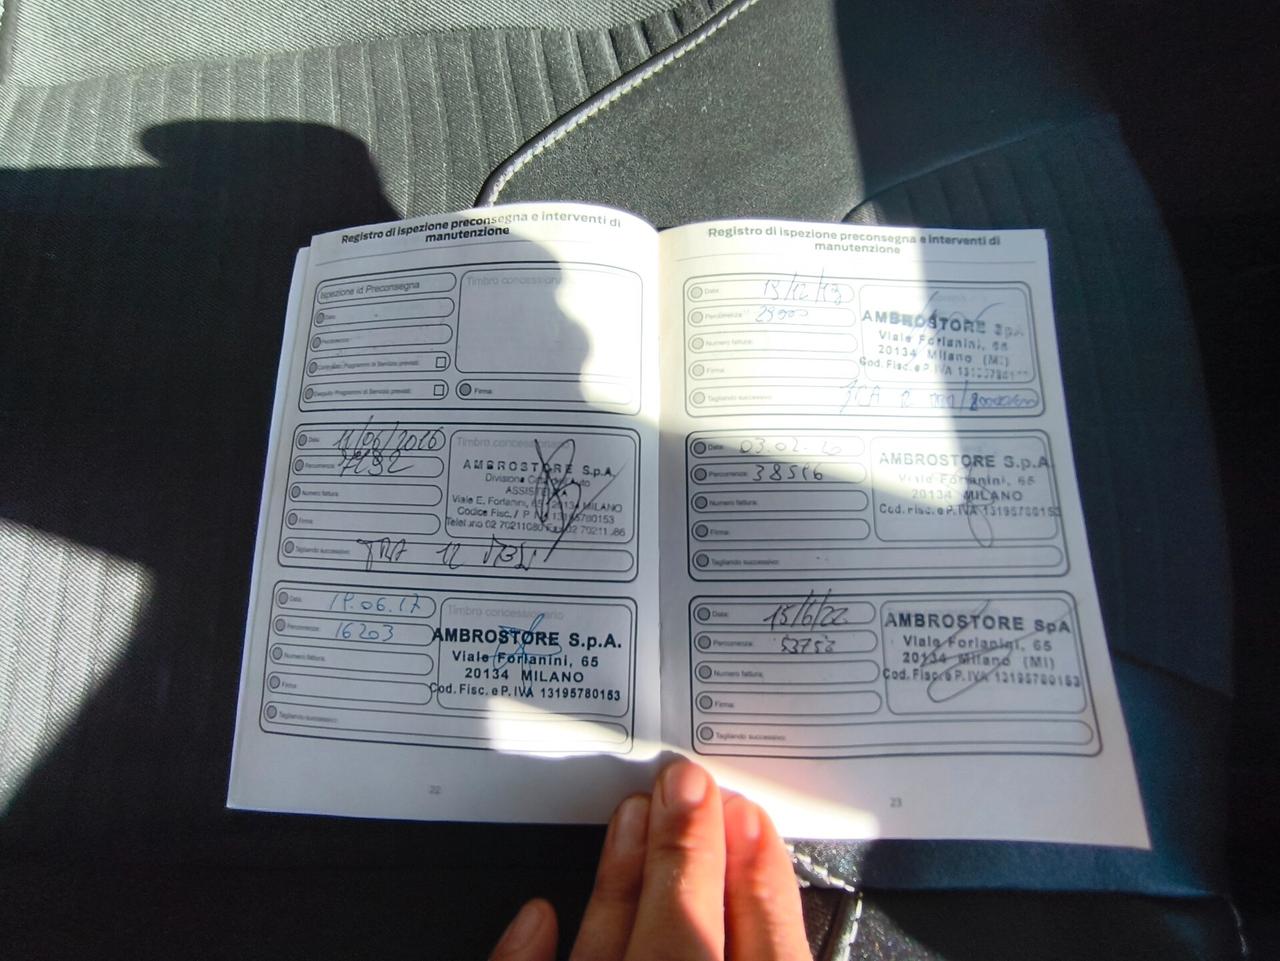 Registro di ispezione preconsegna e interventi di
manutenzione
Ispezione id Preconsegna
Timbro concessionario
Data:
Percorrenza:
Programmi di Servizio previsti:
Eseguito Programmi di Servizio previsti:
Firma:
Data: 11/06/2016
Percorrenza: 7192
Numero fattura:
Firma:
Timbro concessionario
AMBROSTORE S.p.A.
Divisione Città dell'Auto
ASSISTENZA
Viale E. Forlanini, 65 20134 MILANO
Codice Fisc. / P. IVA 13195780153
02 70211080 Fax 02 70211
Tagliando successivo: TRA 12 MESI
Data: 19.06.17
Percorrenza: 16203
Numero fattura:
Firma:
Timbro concessionario
AMBROSTORE S.p.A.
Viale Forlanini, 65
20134 MILANO
Cod. Fisc. e P. IVA 13195780153
Tagliando successivo:
22
Registro di ispezione preconsegna e interventi di
manutenzione
Data:
Percorrenza:
Numero fattura:
Firma:
AMBROSTORE SpA
Viale Forlanini, 65
20134 Milano (Mi)
Cod. Fisc. e P. IVA
Tagliando successivo:
Data: 03.02.20
Percorrenza: 38596
Numero fattura:
Firma:
AMBROSTORE S.p.A.
Viale Forlanini, 65
20134 MILANO
Cod. Fisc. e P. IVA 13195780153
Tagliando successivo:
Data: 15/6/22
Percorrenza: 53758
Numero fattura:
Firma:
AMBROSTORE SpA
Viale Forlanini, 65
20134 Milano (Mi)
Cod. Fisc. e P. IVA 13195780153
Tagliando successivo:
23